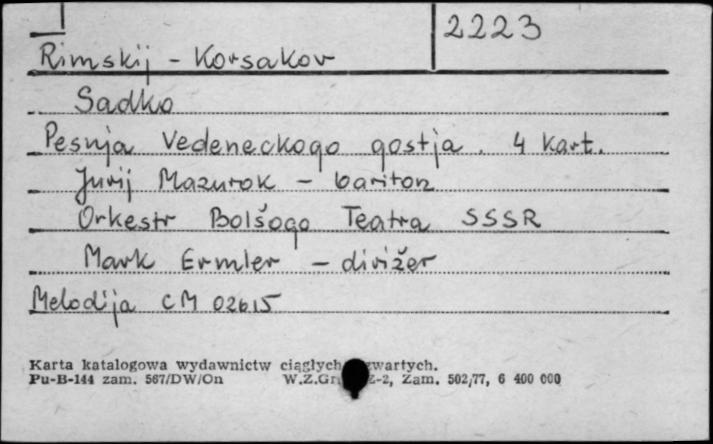 2223
Rimskij - Korsakov
Sadko
Pesnja Vedeneckogo gostja. 4 kart.
Jurij Mazurok - bariton
Orkestr Bolšogo Teatra SSSR
Mark Ermler - dirižer
Melodija CM 02615
Karta katalogowa wydawnictw ciągłych zwartych.
Pu-B-144 zam. 567/DW/On W.Z.Gr. Z-2, Zam. 502/77, 6 400 000